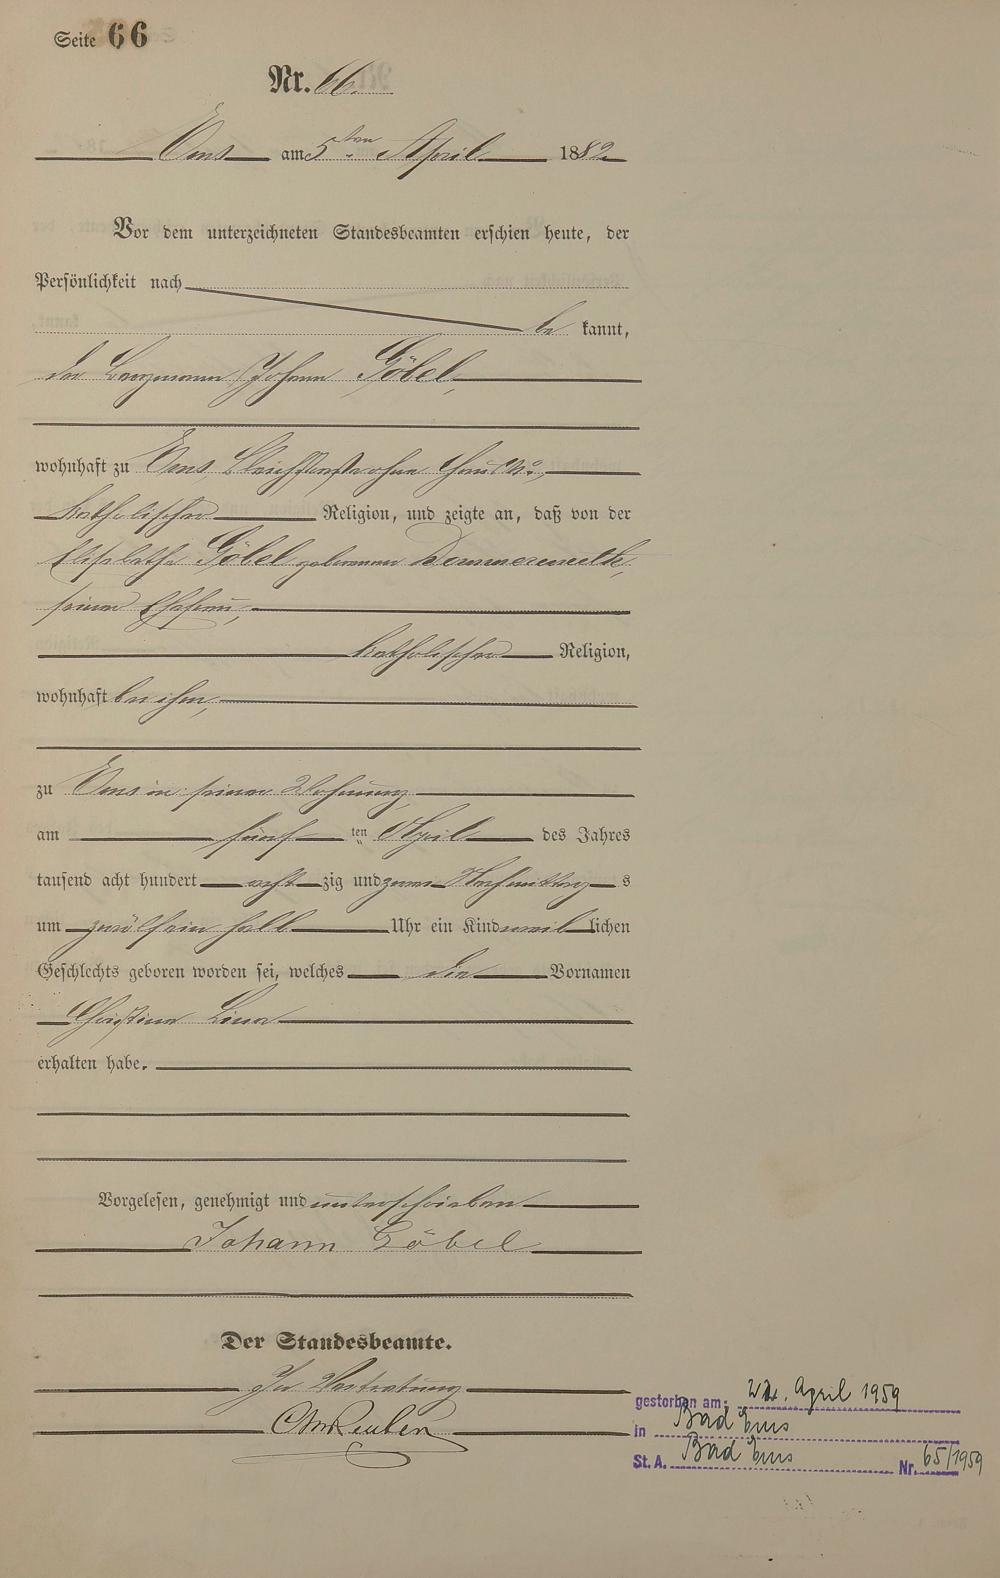 Seite 66
Nr. 66.
Ems am 5ten April 1882
Vor dem unterzeichneten Standesbeamten erschien heute, der
Persönlichkeit nach
be kannt,
der Bergmann Johann Göbel,
wohnhaft zu Ems, Bleichstraße ohne Haus No.
katholischer Religion, und zeigte an, daß von der
Elisabetha Göbel geborenen Dommermuth,
seiner Ehefrau,
katholischer Religion,
wohnhaft bei ihm,
zu Ems in seiner Wohnung
am fünf ten April des Jahres
tausend acht hundert acht zig und zwei Nachmittag s
um zwölfein halb Uhr ein Kind weib lichen
Geschlechts geboren worden sei, welches die Vornamen
Christina Lina
erhalten habe.
Vorgelesen, genehmigt und unterschrieben
Johann Göbel
Der Standesbeamte.
In Vertretung
gestorben am: April 1959
in Bad Ems
St. A. Bad Ems Nr. 65/1959